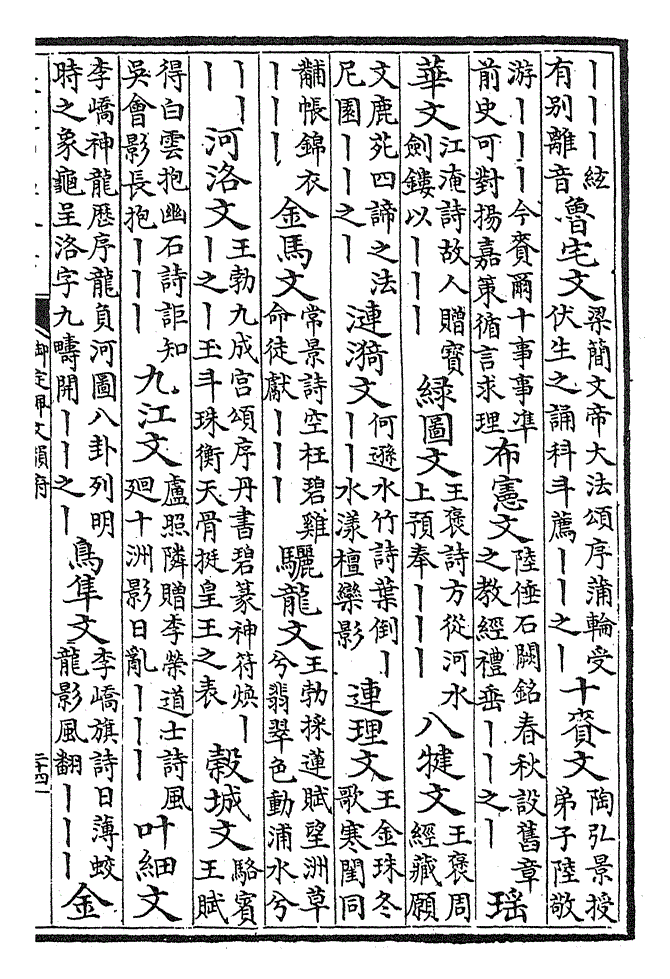 丨丨丨絃有别離音魯宅文梁簡文帝大法頌序蒲輪受伏生之誦科斗薦丨丨之丨十賚文陶弘景授弟子陸敬
游丨丨丨今賚爾十事事準前史可對揚嘉策循言求理布憲文陸倕石闕銘春秋設舊章之教經禮垂丨丨之丨瑶
華文江淹詩故人贈寳劍鏤以丨丨丨緑圖文王褒詩方從河水上預奉丨丨丨八犍文王褒周經藏願
文鹿苑四諦之法尼園丨丨之丨漣漪文何遜水竹詩葉倒丨丨丨水漾檀欒影連理文王金珠冬歌寒閨同
黼帳錦衣丨丨丨金馬文常景詩空枉碧雞命徒獻丨丨丨驪龍文王勃採蓮賦望洲草兮翡翠色動浦水兮
丨丨丨河洛文王勃九成宫頌序丹書碧篆神符煥丨丨之丨玉斗珠衡天骨挺皇王之表榖城文駱賓王賦
得白雲抱幽石詩詎知吳會影長抱丨丨丨九江文盧照隣贈李榮道士詩風廻十洲影日亂丨丨丨叶細文
李嶠神龍厯序龍負河圖八卦列明時之象龜呈洛字九疇開丨丨之丨鳥隼文李嶠旗詩日薄蛟龍影風翻丨丨丨金
御定佩文韻府